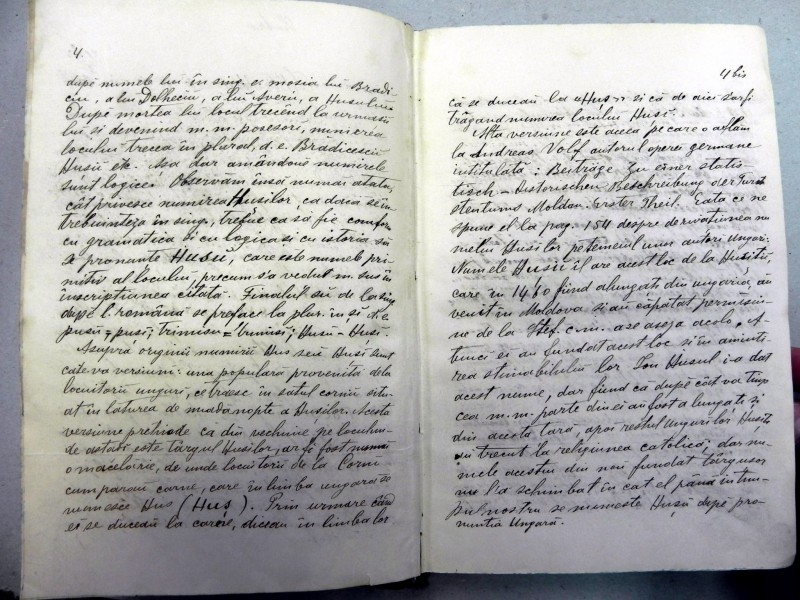 4.
după numele lui în sing. e. mosia lui Bradi-
ciu, a lui Dolheciu, a lui Averiu, a Husului
După mortea lui locul trecênd la urmasii
lui si devenind m. m. posesori, numirea
locului trecea în plural, d. e. Bradicescii
Husii etc. Asa dar amândouă numirele
sunt logice. Observăm însă numai atata,
cât privesce numirea Husilor, ca daca se în-
trebuinteza în sing., trebue ca să fie conform
cu gramatica si cu logica si cu istoria să
se pronunte Husu, care este numele pri-
mitiv al locului, precum s'a vedut m. sus în
inscriptiunea citată. Finalul su de la sing.
după l. română se preface la plur. în si d. e.
pusu = pusi; trimisu = trimisi; Husu - Husi.
Asupra originii numirii Hus seu Husi sunt
cate-va versiuni: una populara provenita de la
locuitorii unguri, ce traesc în satul cornii situ-
at în laturea de miada nopte a Husilor. Acesta
versiune pretinde că din vechime pe locul un-
de astadi este târgul Husilor, ar fi fost numai
o macelarie, de unde locuitorii de la Corni
cumparau carne, care în limba ungara se
numesce Hus (Huș). Prin urmare când
ei se duceau la carne, diceau în limba lor
4 bis
că se duceau la „Hus” si că de aici s'ar fi
trăgând numirea locului Husi.
Alta versiune este aceea pe care o aflăm
la Andreas Volf autorul operei germane
intitulata: Beiträge zu einer statis-
tisch-historischen Beschreibung der Fürst
stentums Moldau. Erster Theil. Eata ce ne
spune el la pag. 154 despre derivatiunea nu-
melui Husilor pe temeiul unor autori Ungari.
Numele Husii îl are acest loc de la Husiti,
care în 1460 fiind alungati din ungaria, au
venit în Moldova si au căpătat permisiu-
ne de la Stef. c. m. a se aseza acolo. A-
tunci ei au fundat acest loc si în aminti-
rea stimabilului lor Ion Husul i-a dat
acest nume, dar fiind că după cât-va timp
cea m. m. parte din ei au fost alungati si
din acesta tară, apoi restul Ungurilor Husiti
au trecut la religiunea catolică; dar nu-
mele acestui din nou fundat târgusor
nu l'a schimbat în cat el până în tim-
pul nostru se numeste Husu după pro-
nuntia Ungară.